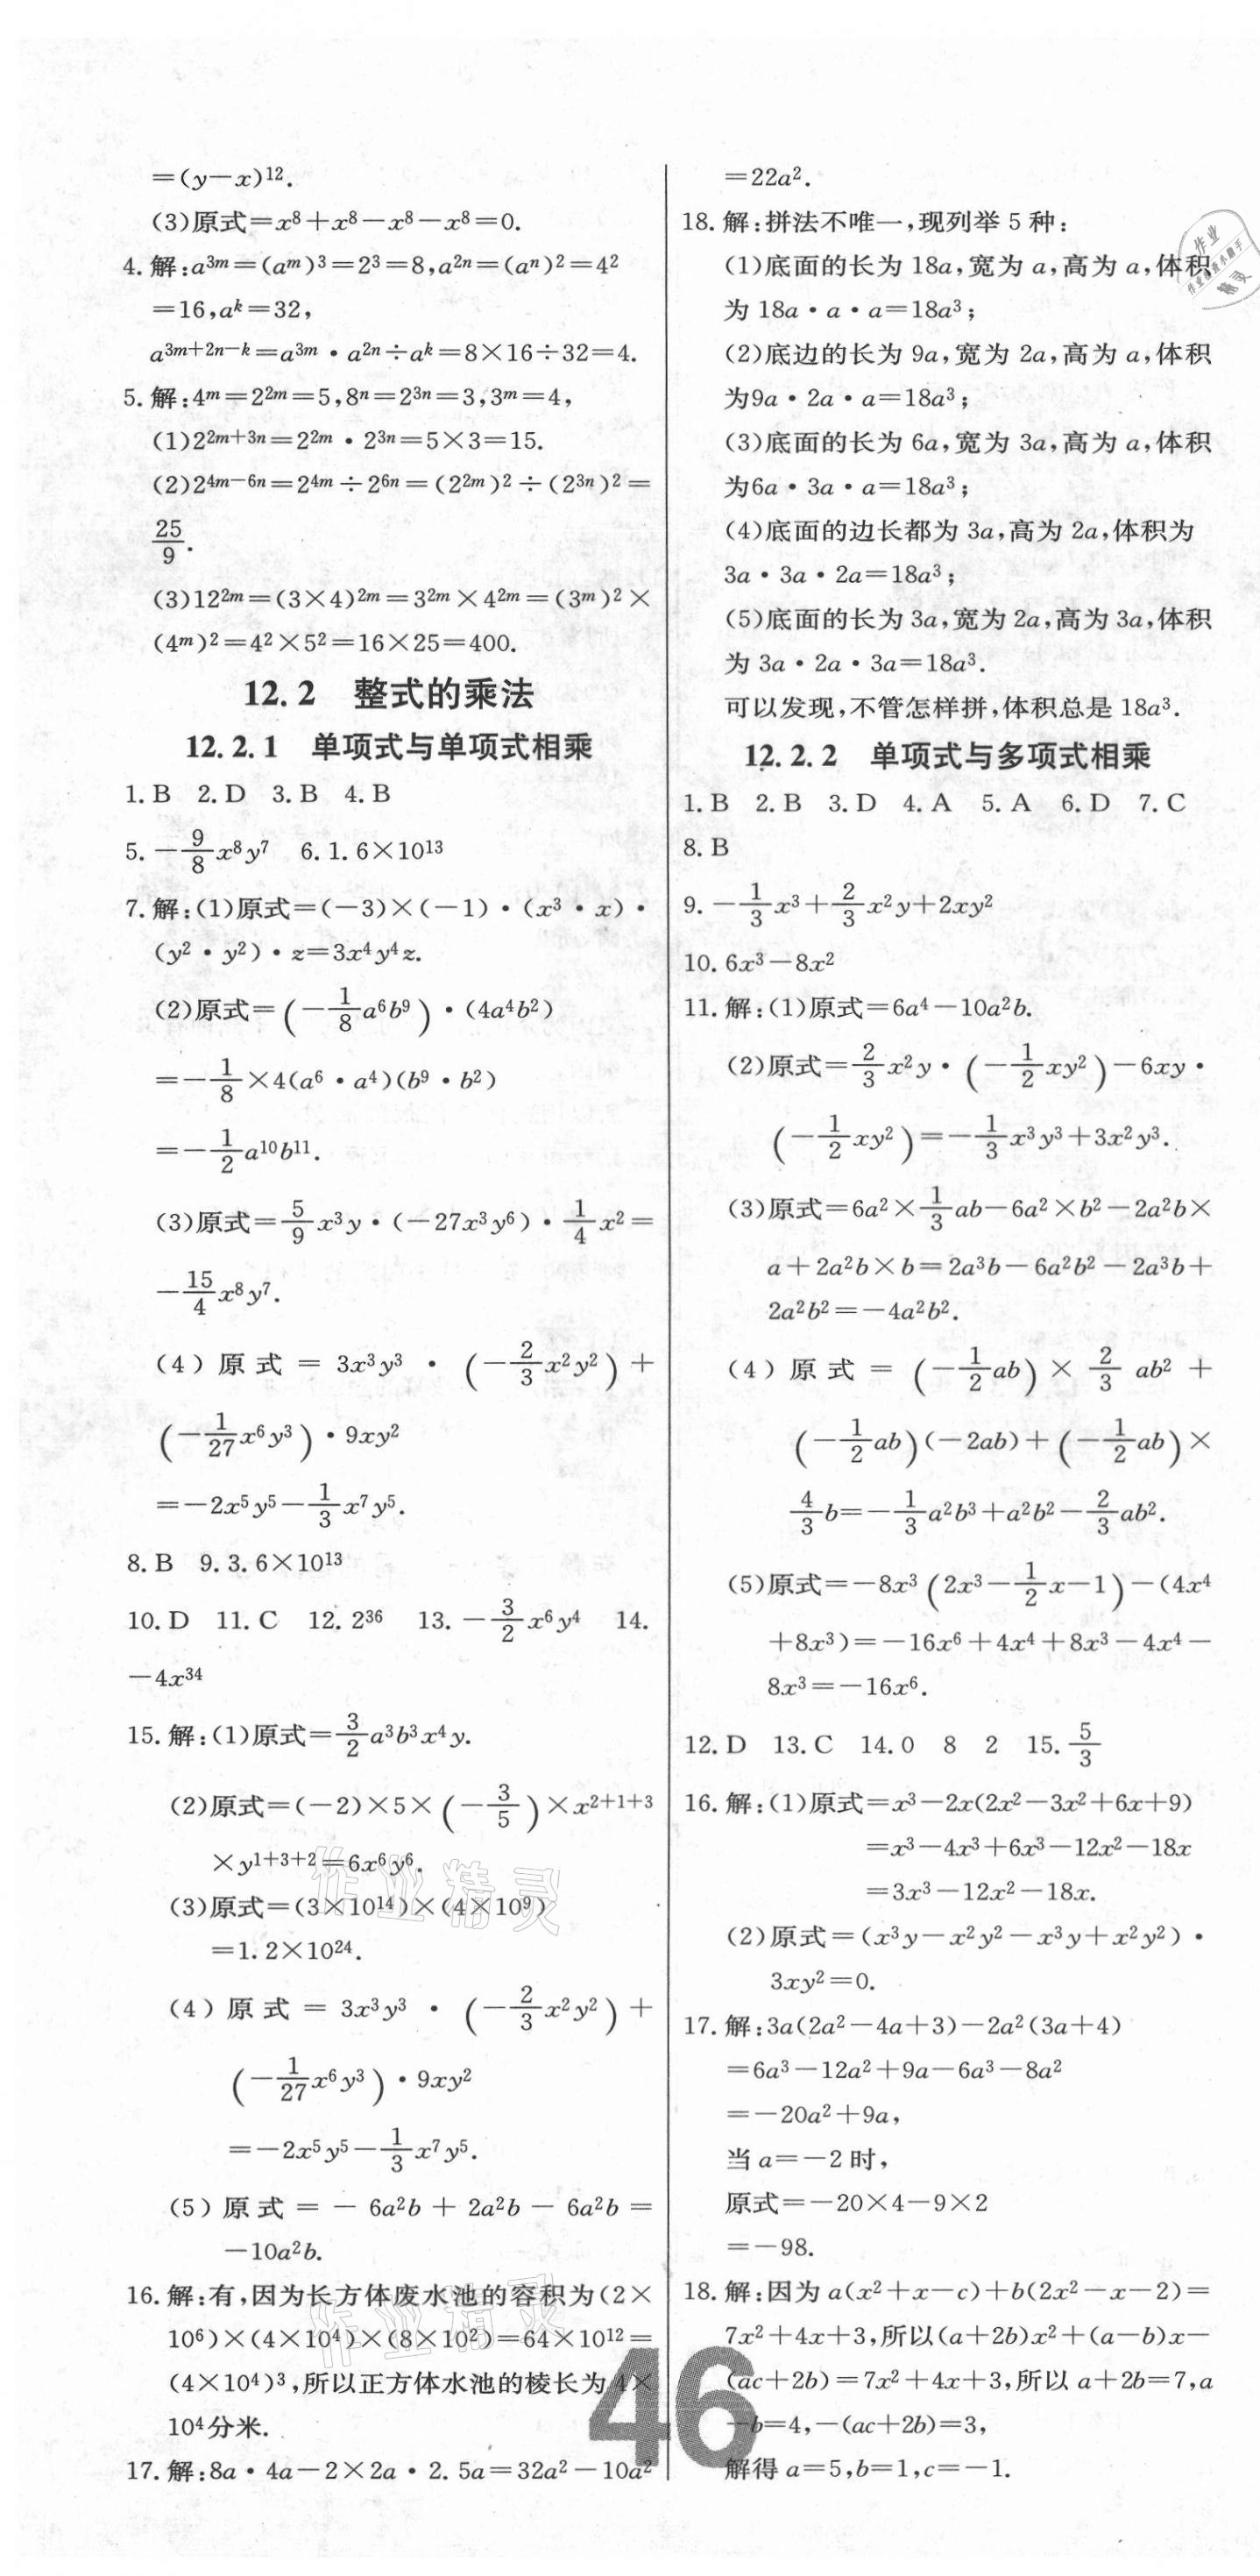 =(y-x)¹².
(3)原式=x⁸+x⁸-x⁸-x⁸=0.
4. 解:a³ᵐ=(aᵐ)³=2³=8,a²ⁿ=(aⁿ)²=4²
=16,aᵏ=32,
a³ᵐ⁺²ⁿ⁻ᵏ=a³ᵐ·a²ⁿ÷aᵏ=8×16÷32=4.
5. 解:4ᵐ=2²ᵐ=5,8ⁿ=2³ⁿ=3,3ᵐ=4,
(1)2²ᵐ⁺³ⁿ=2²ᵐ·2³ⁿ=5×3=15.
(2)2⁴ᵐ⁻⁶ⁿ=2⁴ᵐ÷2⁶ⁿ=(2²ᵐ)²÷(2³ⁿ)²=
25/9.
(3)12²ᵐ=(3×4)²ᵐ=3²ᵐ×4²ᵐ=(3ᵐ)²×
(4ᵐ)²=4²×5²=16×25=400.
12.2 整式的乘法
12.2.1 单项式与单项式相乘
1. B 2. D 3. B 4. B
5. -9/8x⁸y⁷ 6. 1.6×10¹³
7. 解:(1)原式=(-3)×(-1)·(x³·x)·
(y²·y²)·z=3x⁴y⁴z.
(2)原式=(-1/8a⁶b⁹)·(4a⁴b²)
=-1/8×4(a⁶·a⁴)(b⁹·b²)
=-1/2a¹⁰b¹¹.
(3)原式=5/9x³y·(-27x³y⁶)·1/4x²=
-15/4x⁸y⁷.
(4)原式=3x³y³·(-2/3x²y²)+
(-1/27x⁶y³)·9xy²
=-2x⁵y⁵-1/3x⁷y⁵.
8. B 9. 3.6×10¹³
10. D 11. C 12. 2³⁶ 13. -3/2x⁶y⁴ 14.
-4x³⁴
15. 解:(1)原式=3/2a³b³x⁴y.
(2)原式=(-2)×5×(-3/5)×x²⁺¹⁺³
×y¹⁺³⁺²=6x⁶y⁶.
(3)原式=(3×10¹⁴)×(4×10⁹)
=1.2×10²⁴.
(4)原式=3x³y³·(-2/3x²y²)+
(-1/27x⁶y³)·9xy²
=-2x⁵y⁵-1/3x⁷y⁵.
(5)原式=-6a²b+2a²b-6a²b=
-10a²b.
16. 解:有,因为长方体废水池的容积为(2×
10⁶)×(4×10⁴)×(8×10²)=64×10¹²=
(4×10⁴)³,所以正方体水池的棱长为4×
10⁴分米.
17. 解:8a·4a-2×2a·2.5a=32a²-10a²
=22a².
18. 解:拼法不唯一,现列举5种:
(1)底面的长为18a,宽为a,高为a,体积
为18a·a·a=18a³;
(2)底边的长为9a,宽为2a,高为a,体积
为9a·2a·a=18a³;
(3)底面的长为6a,宽为3a,高为a,体积
为6a·3a·a=18a³;
(4)底面的边长都为3a,高为2a,体积为
3a·3a·2a=18a³;
(5)底面的长为3a,宽为2a,高为3a,体积
为3a·2a·3a=18a³.
可以发现,不管怎样拼,体积总是18a³.
12.2.2 单项式与多项式相乘
1. B 2. B 3. D 4. A 5. A 6. D 7. C
8. B
9. -1/3x³+2/3x²y+2xy²
10. 6x³-8x²
11. 解:(1)原式=6a⁴-10a²b.
(2)原式=2/3x²y·(-1/2xy²)-6xy·
(-1/2xy²)=-1/3x³y³+3x²y³.
(3)原式=6a²×1/3ab-6a²×b²-2a²b×
a+2a²b×b=2a³b-6a²b²-2a³b+
2a²b²=-4a²b².
(4)原式=(-1/2ab)×2/3ab²+
(-1/2ab)(-2ab)+(-1/2ab)×
4/3b=-1/3a²b³+a²b²-2/3ab².
(5)原式=-8x³(2x³-1/2x-1)-(4x⁴
+8x³)=-16x⁶+4x⁴+8x³-4x⁴-
8x³=-16x⁶.
12. D 13. C 14. 0 8 2 15. 5/3
16. 解:(1)原式=x³-2x(2x²-3x²+6x+9)
=x³-4x³+6x³-12x²-18x
=3x³-12x²-18x.
(2)原式=(x³y-x²y²-x³y+x²y²)·
3xy²=0.
17. 解:3a(2a²-4a+3)-2a²(3a+4)
=6a³-12a²+9a-6a³-8a²
=-20a²+9a,
当a=-2时,
原式=-20×4-9×2
=-98.
18. 解:因为a(x²+x-c)+b(2x²-x-2)=
7x²+4x+3,所以(a+2b)x²+(a-b)x-
(ac+2b)=7x²+4x+3,所以a+2b=7,a
-b=4,-(ac+2b)=3,
解得a=5,b=1,c=-1.
46
作业精灵
作业精灵